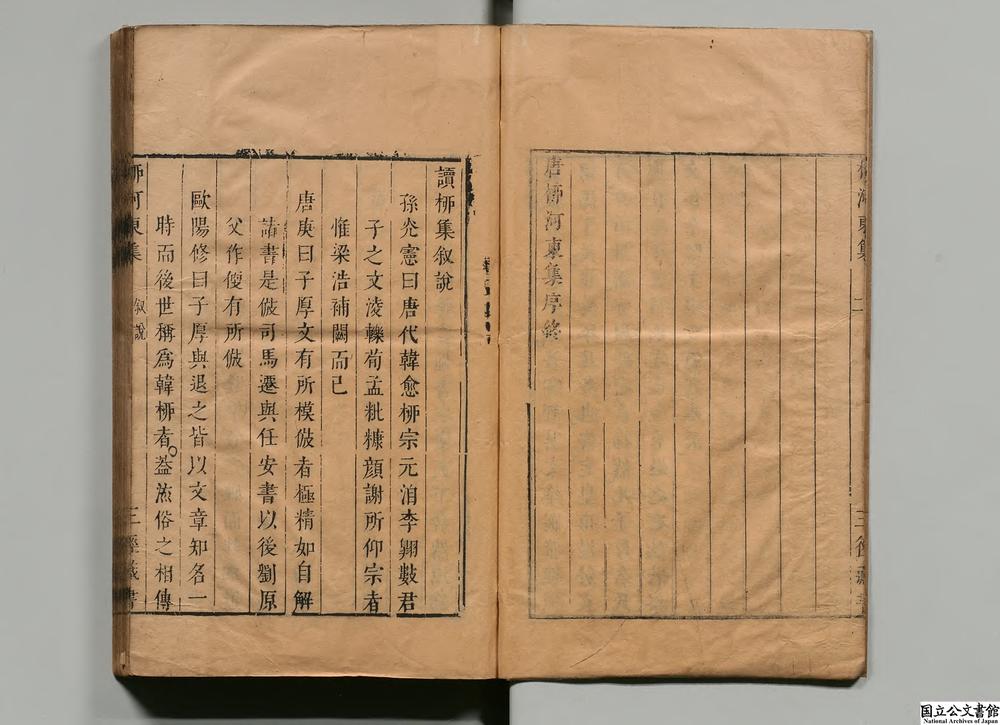 河東集
二
三徑藏書
唐栁河東集序終
讀栁集叙說
孫光憲曰唐代韓愈栁宗元洎李翺數君
子之文淩轢荀孟粃糠顔謝所仰宗者
惟梁浩補闕而已
唐庚曰子厚文有所模倣者極精如自解
諸書是倣司馬遷與任安書以後劉原
父作便有所倣
歐陽修曰子厚與退之皆以文章知名一
時而後世稱爲韓栁者葢流俗之相傳
栁河東集
叙說
三徑藏書
国立公文書館
National Archives of Japan